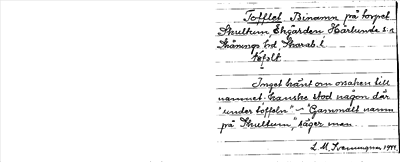 Tofflet Binamn på torpet
Skultum, Ekgården, Härlunda s:n
Skånings hd, Skarab. l.
Inget känt om orsaken till
namnet. Kanske stod någon där
"under toffeln" - "Gammalt namn
på Skultum", säger man